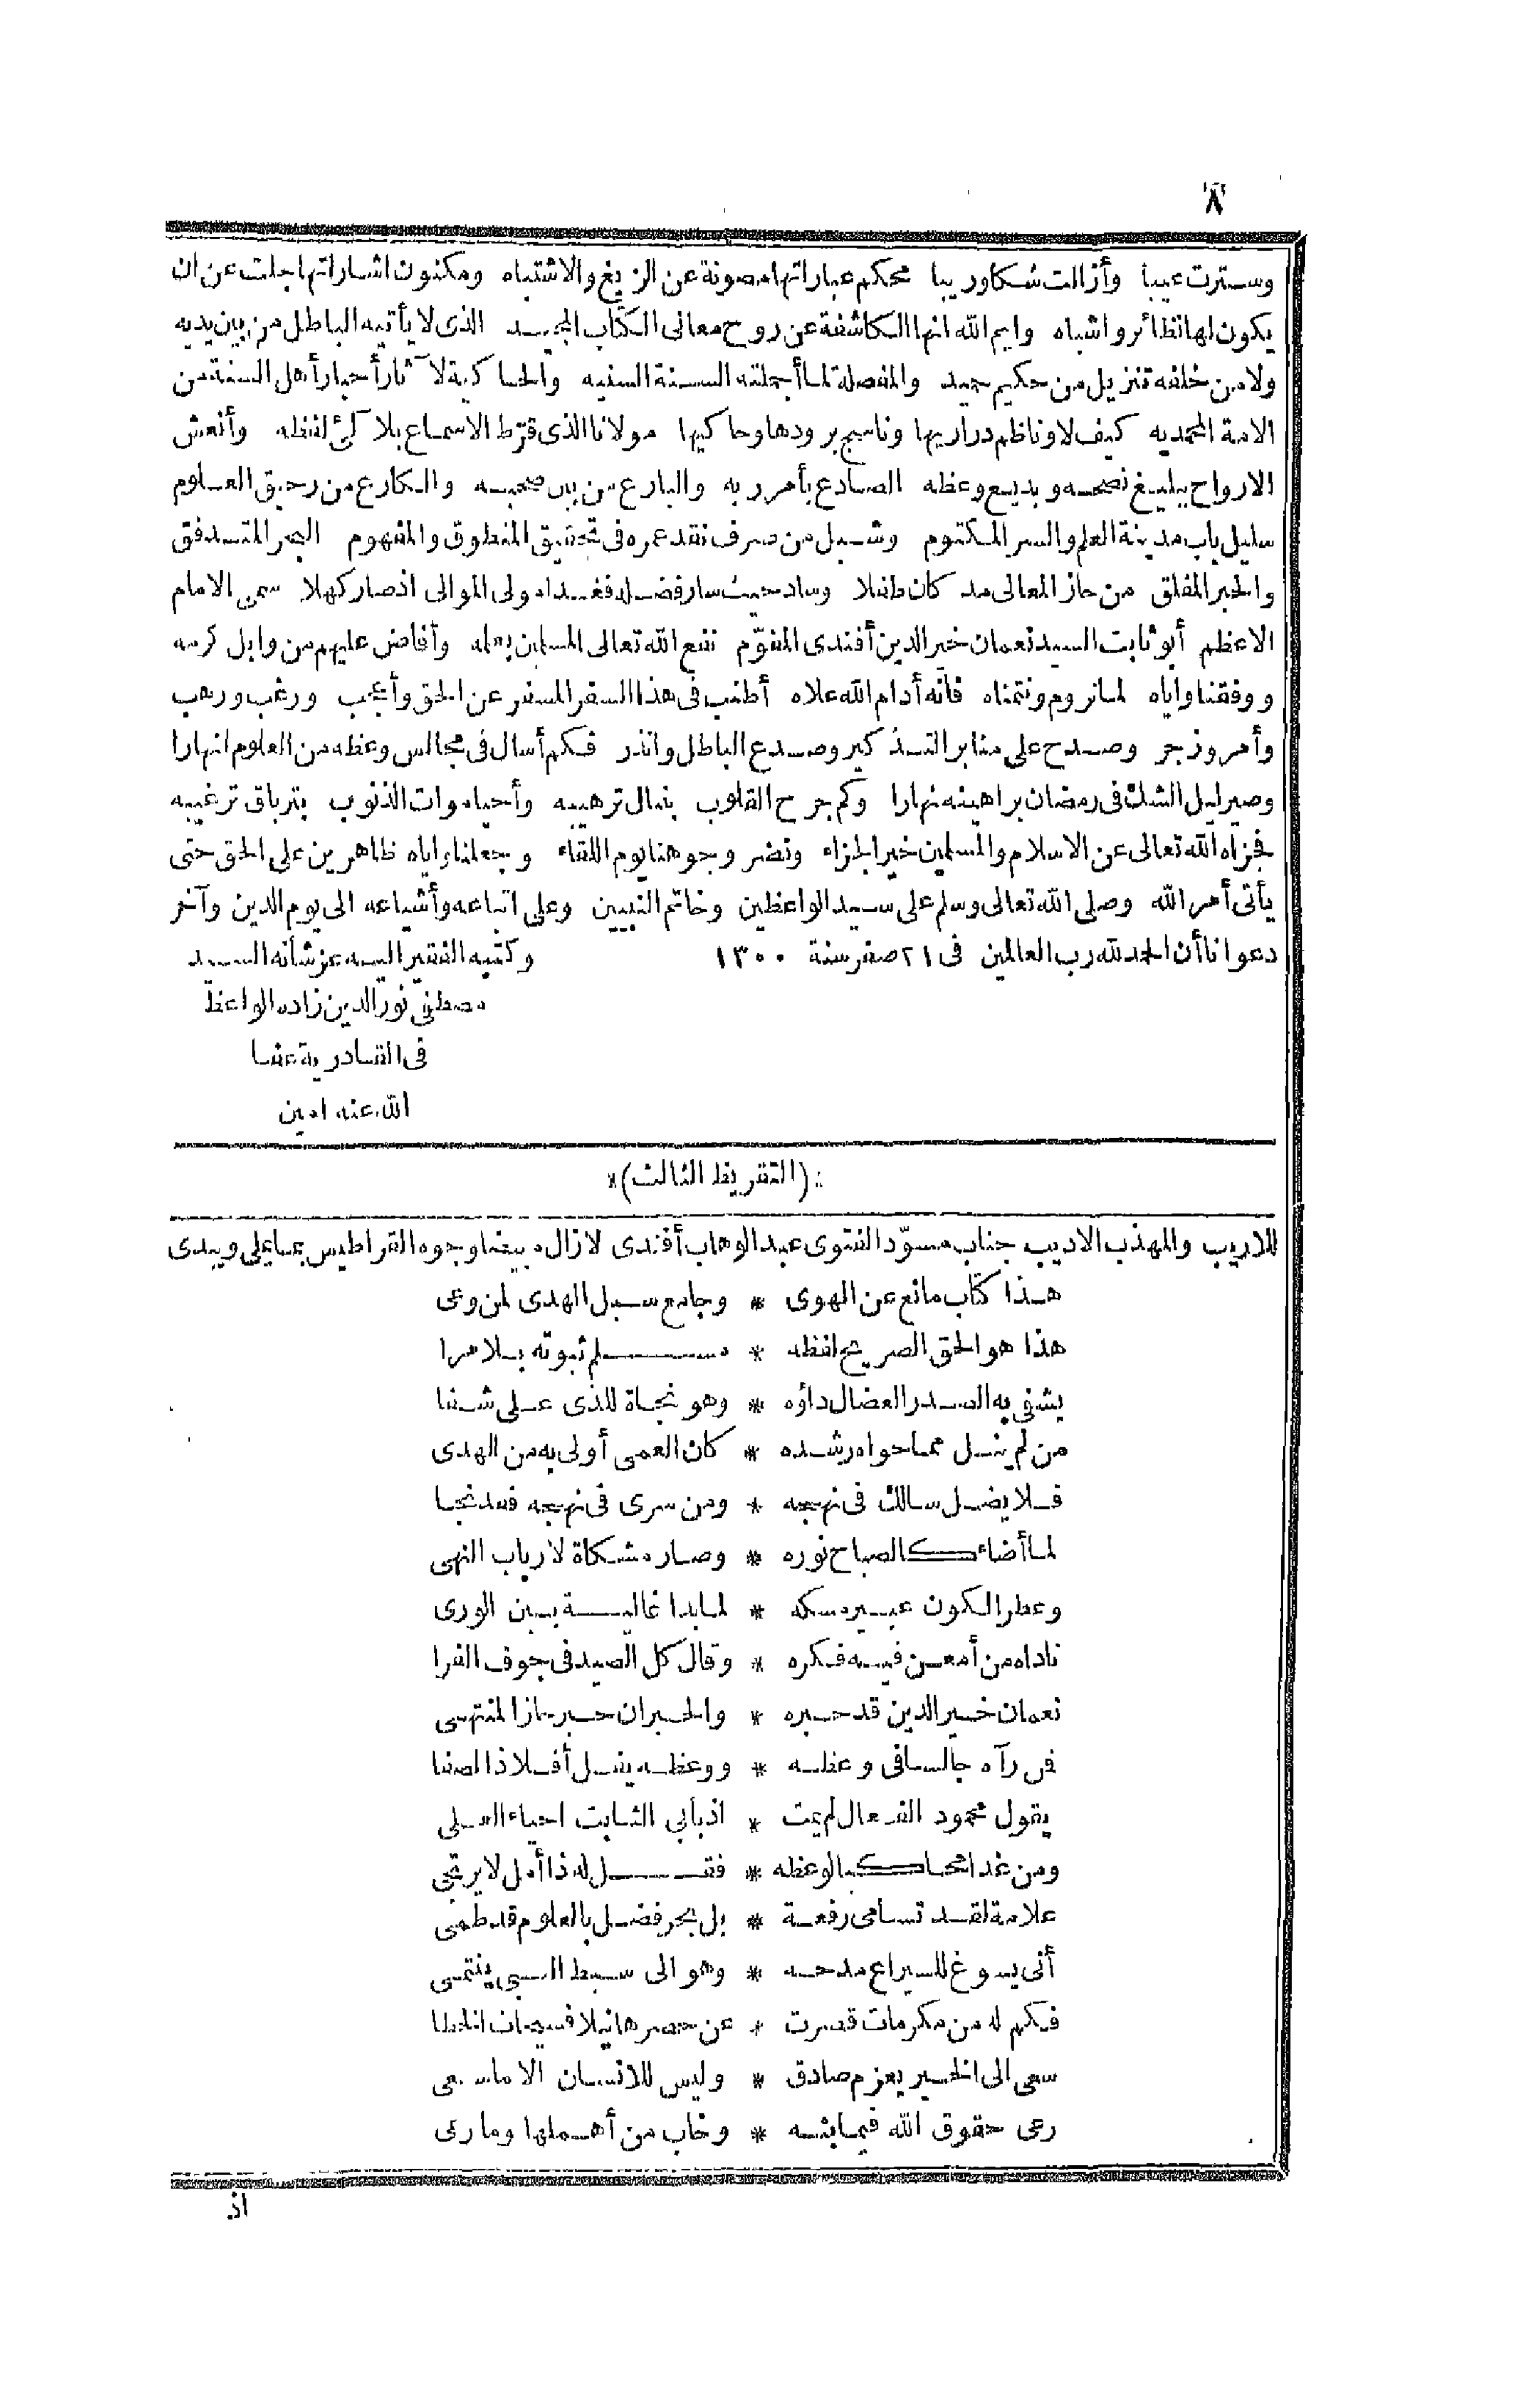 ٨
وسترت عيبا وأزالت شكا وريبا محكم عباراتها مصونة عن الزيغ والاشتباه ومكنون اشاراتها جلت عن ان
يكون لها نظائر واشباه وايم الله انها الكاشفة عن روح معانى الكتاب المجيد الذى لا يأتيه الباطل من بين يديه
ولا من خلفه تنزيل من حكيم حميد والمفصلة لما أجملته السنة السنيه والحاكية لآثار أحبار أهل السنة من
الامة المحمديه كيف لا وناظم دراريها وناسج برودها وحاكيها مولانا الذى قرّط الاسماع بلآلئ لفظه وأنعش
الارواح ببليغ نصحه وبديع وعظه الصادع بأمر ربه والبارع من بين صحبه والكارع من رحيق العلوم
سليل باب مدينة العلم والسر المكتوم وشبل من صرف نقد عمره فى تحقيق المنطوق والمفهوم البحر المتدفق
والحبر المفلق من حاز المعالى مذ كان طفلا وساد حيث سار فضله فغدا مولى الموالى اذ صار كهلا سمى الامام
الاعظم أبو ثابت السيد نعمان خير الدين أفندى المفوّم نفع الله تعالى المسلمين بعلمه وأفاض عليهم من وابل كرمه
ووفقنا واياه لما نروم ونتمناه فانه أدام الله علاه أطنب فى هذا السفر المسفر عن الحق وأعجب ورغب ورهب
وأمر وزجر وصدح على منابر التذكير وصدع الباطل وانذر فكم أسال فى مجالس وعظه من العلوم انهارا
وصير ليل الشك فى رمضان براهينه نهارا وكم جرح القلوب بنبال ترهيبه وأحيا موات الذنوب بترياق ترغيبه
فجزاه الله تعالى عن الاسلام والمسلمين خير الجزاء ونضر وجوهنا يوم اللقاء وجعلنا واياه ظاهرين على الحق حتى
يأتى أمر الله وصلى الله تعالى وسلم على سيد الواعظين وخاتم النبيين وعلى اتباعه وأشياعه الى يوم الدين وآخر
دعوانا أن الحمد لله رب العالمين فى ٢١ صفر سنة ١٣٠٠ وكتبه الفقير اليه عز شأنه السيد
مصطفى نور الدين زاده الواعظ
فى القادرية عفا
الله عنه امين
*(التقريظ الثالث)*
للاريب والمهذب الاديب جناب مسوّد الفتوى عبد الوهاب أفندى لا زال مبيضا وجوه القراطيس بما يملى ويبدى
هذا كتاب مانع عن الهوى * وجامع سبل الهدى لمن وعى
هذا هو الحق الصريح لفظه * مسلم ثبوته بلا مرا
يشفى به الصدر العضال داؤه * وهو نجاة للذى على شفا
من لم ينل مما حواه رشده * كان العمى أولى به من الهدى
فلا يضل سالك فى نهجه * ومن سرى فى نهجه فقد نجا
لما أضاء كالصباح نوره * وصار مشكاة لارباب النهى
وعطر الكون عبير مسكه * لما بدا غالية بين الورى
ناداه من أمعن فيه فكره * وقال كل الصيد فى جوف الفرا
نعمان خير الدين قد حبره * والحبر ان حبر حاز المنتهى
فمن رآه جالسا فى وعظه * ووعظه يفل أفلاذ الصفا
يقول محمود الفعال لم يمت * اذ بأبى الثابت احياء العلى
ومن غدا محاكيا لوعظه * فقل له ذا أمل لا يرتجى
علامة لقد تسامى رفعة * بل بحر فضل بالعلوم قد طمى
أنى يسوغ لليراع مدحه * وهو الى سبط النبى ينتمى
فكم له من مكرمات قصرت * عن حصرها نيلا فسيحات الخطا
سعى الى الخير بعزم صادق * وليس للانسان الا ما سعى
رعى حقوق الله فيما بثه * وخاب من أهملها وما رعى
اذ